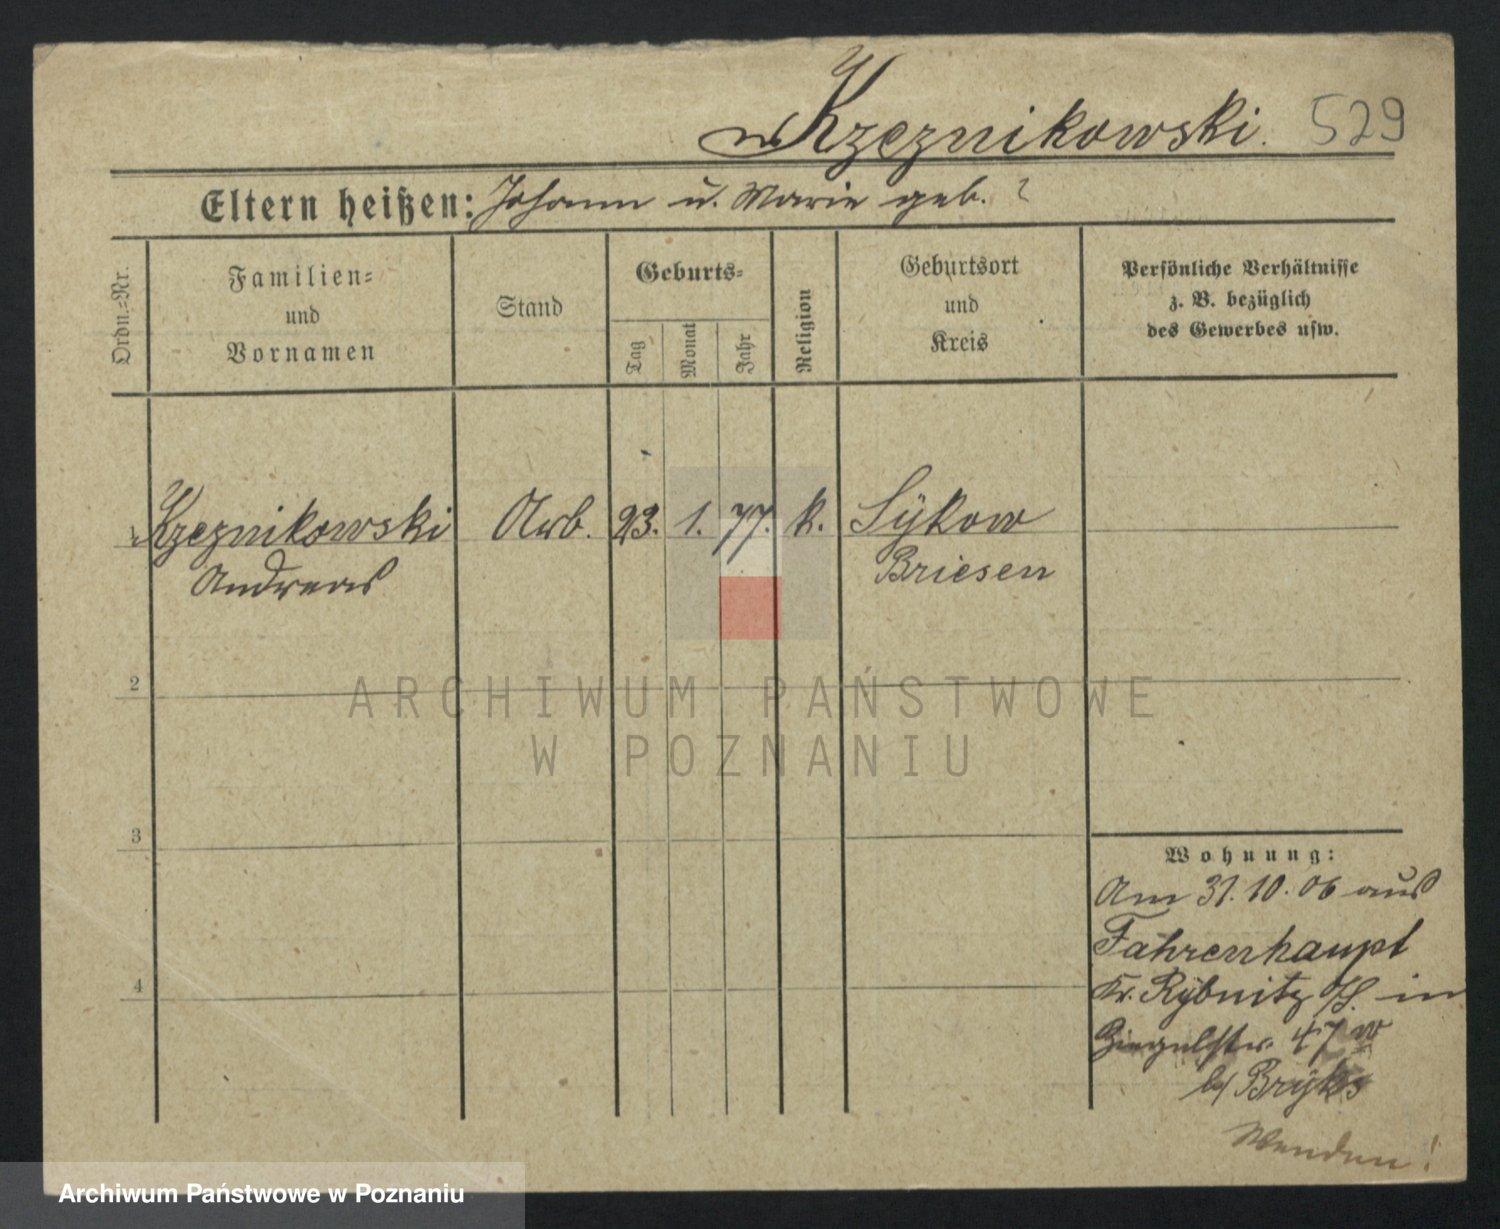 Krzeznikowski. 529
Eltern heißen: Johann u. Marie geb. ?
Ordn.-Nr.
Familien-
und
Vornamen
Stand
Geburts-
Tag
Monat
Jahr
Religion
Geburtsort
und
Kreis
Persönliche Verhältnisse
z. B. bezüglich
des Gewerbes usw.
1 Krzeznikowski Arb. 23. 1. 77. k. Sÿkow
Andreas Briesen
2
ARCHIWUM PAŃSTWOWE
W POZNANIU
3
Wohnung:
Am 31. 10. 06 aus
Fahrenhaupt
4
Kr. Rÿbnitz in
Ziegelstr. 47
b/ Brÿks
Wenden!
Archiwum Państwowe w Poznaniu